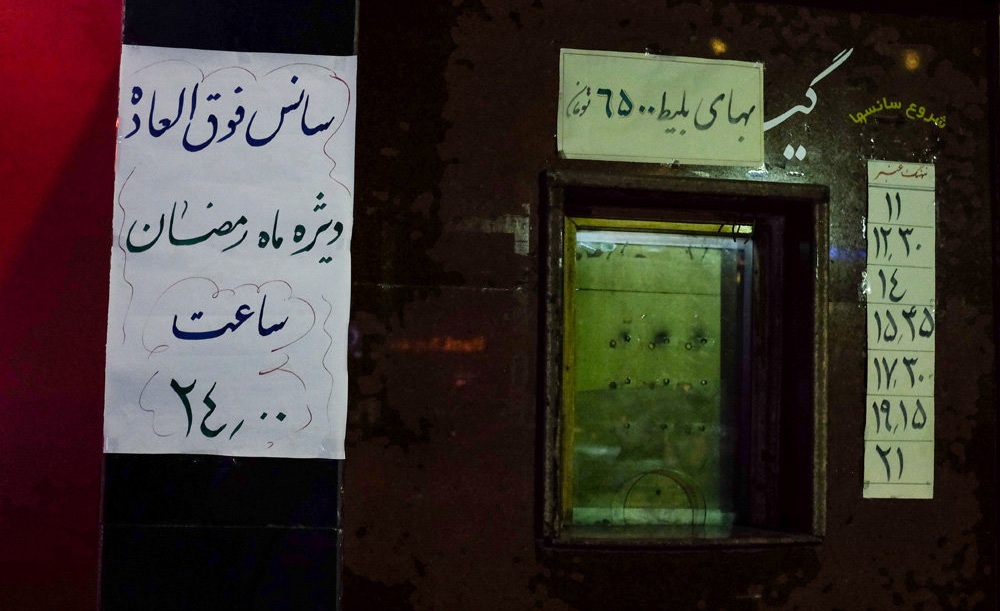 سانس فوق العاده
ویژه ماه رمضان
ساعت
۲٤٫۰۰
بهای بلیط ٦۵۰۰ تومان
گیـ
شروع سانسها
۱۱
۱۲٫۳۰
۱٤
۱۵٫۴۵
۱۷٫۳۰
۱۹٫۱۵
۲۱